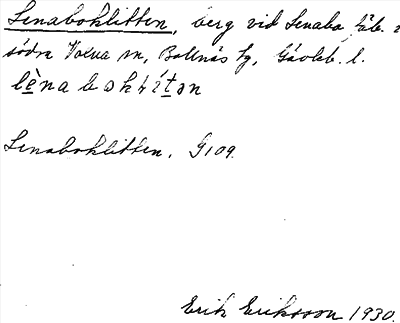 Lenaboklitten, berg vid Lenabo fäb. i
södra Voxna sn, Bollnäs tg, Gävleb. l.
Lenaboklitten. G109.
Erik Eriksson 1930.